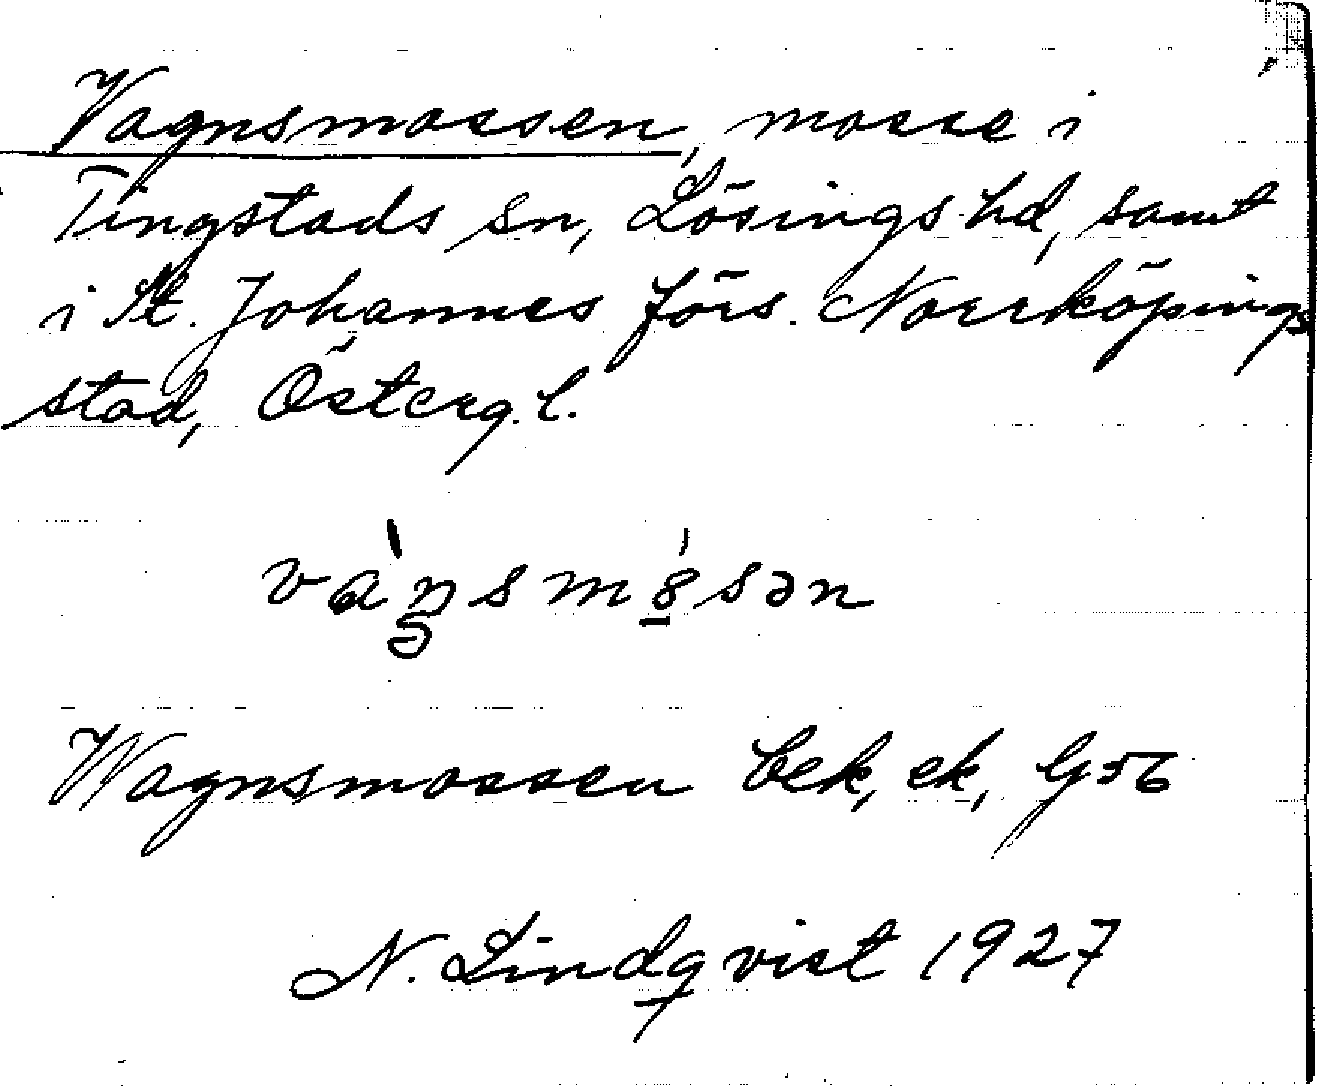 Vagnsmossen, mosse i
Tingstads sn, Lösings hd, samt
i St. Johannes förs. Norrköpings
stad, Österg. l.
Wagnsmossen bek, ek, G56
N. Lindqvist 1927